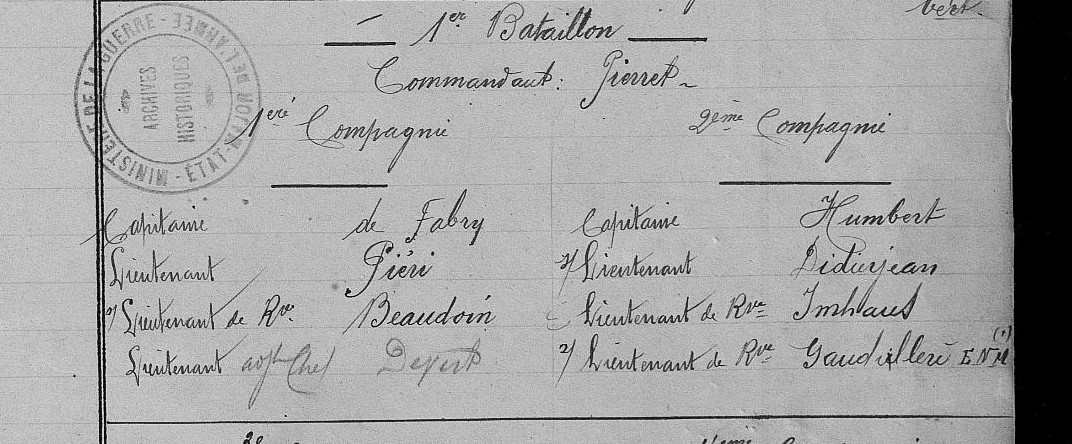 1er Bataillon
Commandant: Pierret
MINISTÈRE DE LA GUERRE - ÉTAT-MAJOR DE L'ARMÉE -
ARCHIVES
HISTORIQUES
1ère Compagnie
2ème Compagnie
Capitaine de Fabry
Lieutenant Piéri
s/ Lieutenant de Rve Beaudoin
Lieutenant adjt Chef
Capitaine Humbert
s/ Lieutenant Didierjean
Lieutenant de Rve Imhaus
s/ Lieutenant de Rve Gaudillère E.N.M (1)